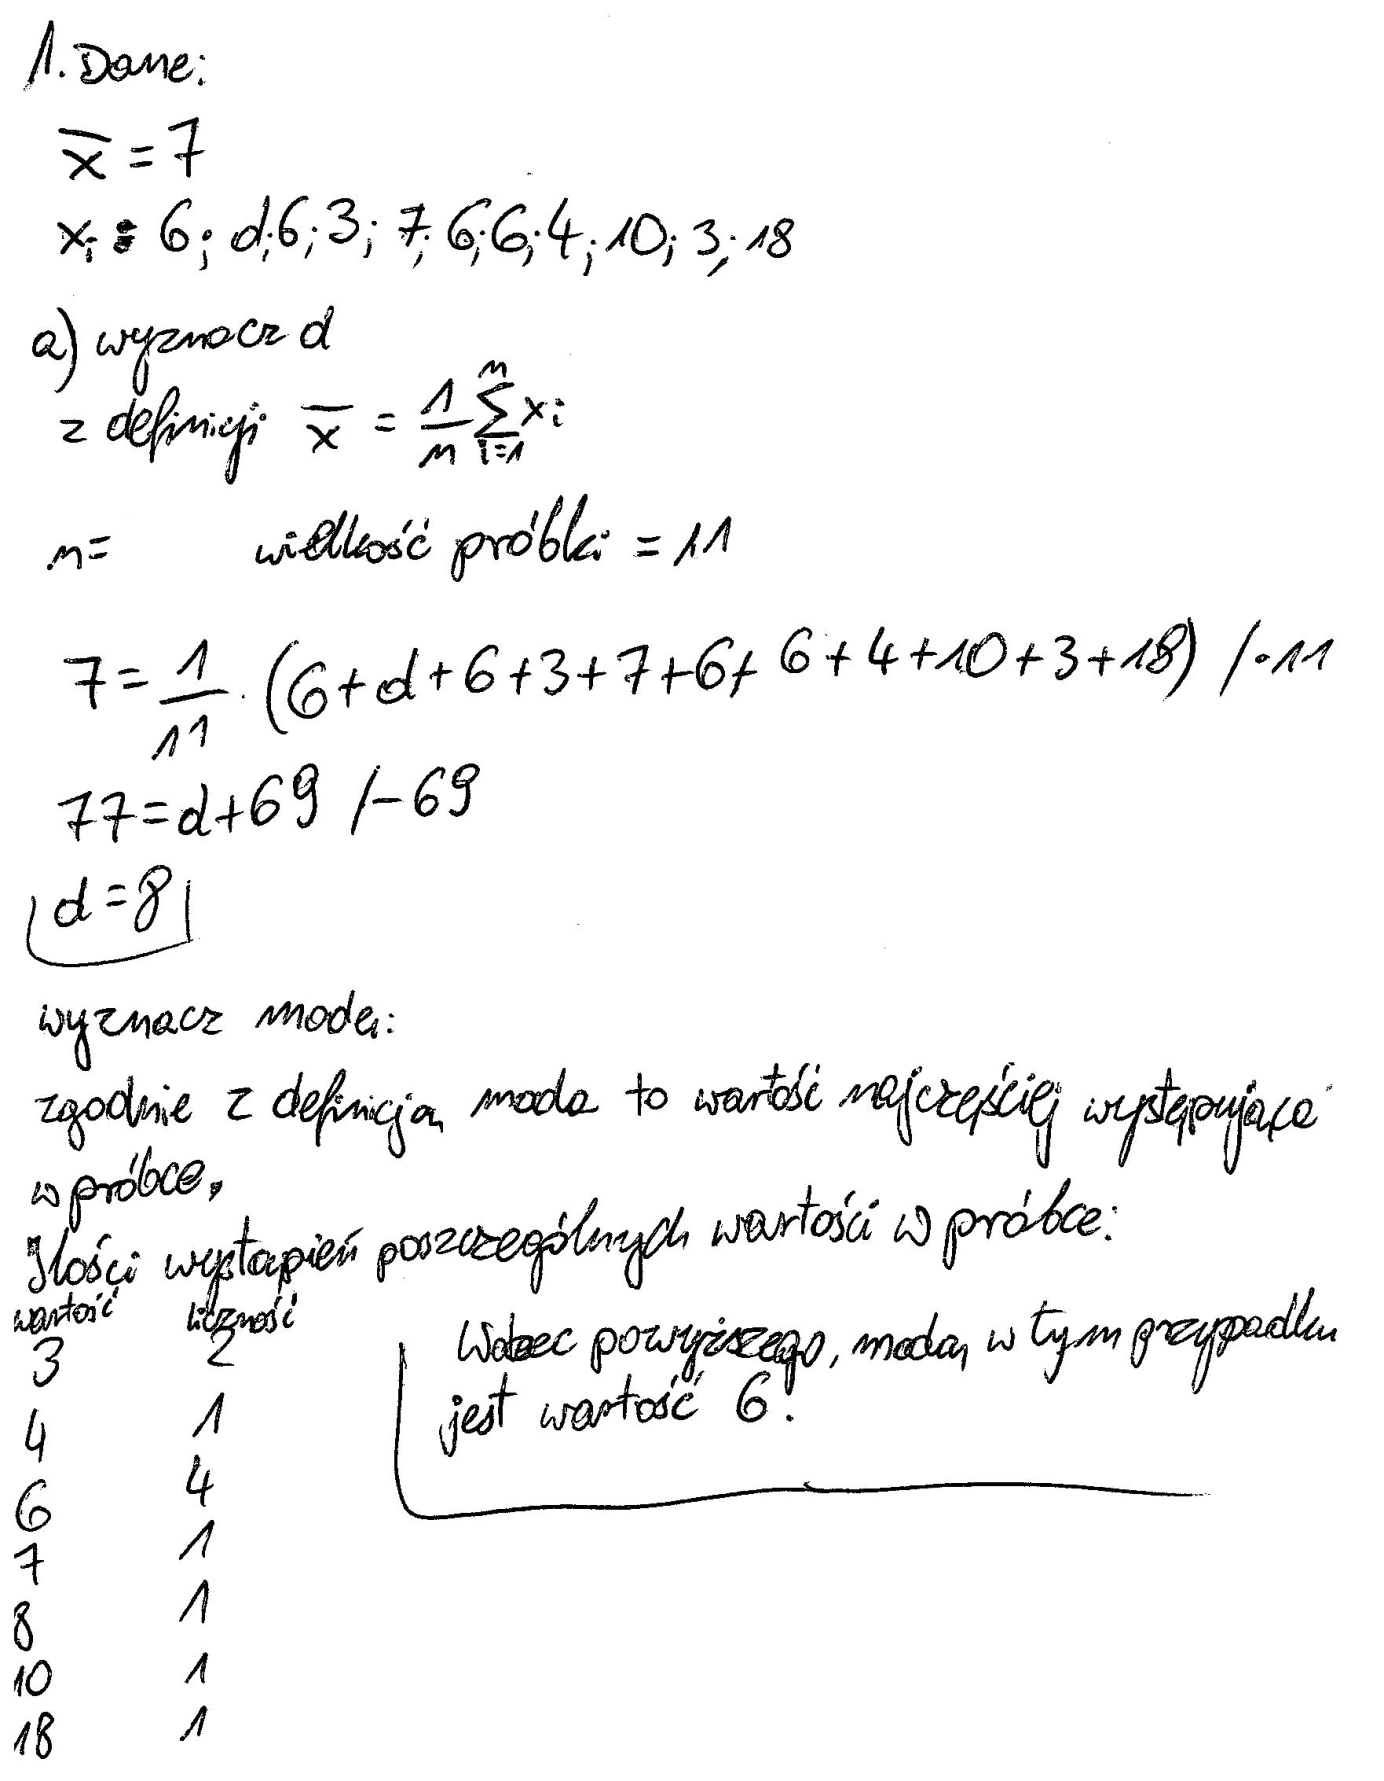 1. Dane:
x̄ = 7
xᵢ : 6; d; 6; 3; 7; 6; 6; 4; 10; 3; 18
a) wyznacz d
z definicji x̄ = 1/n ∑ᵢ₌₁ⁿ xᵢ
n= wielkość próbki = 11
7 = 1/11 · (6+d+6+3+7+6+6+4+10+3+18) /·11
77=d+69 /-69
d=8
wyznacz modę:
zgodnie z definicją moda to wartość najczęściej występująca
w próbce.
Ilości wystąpień poszczególnych wartości w próbce:
wartość liczność
3 2
4 1
6 4
7 1
8 1
10 1
18 1
Wobec powyższego, modą w tym przypadku
jest wartość 6.